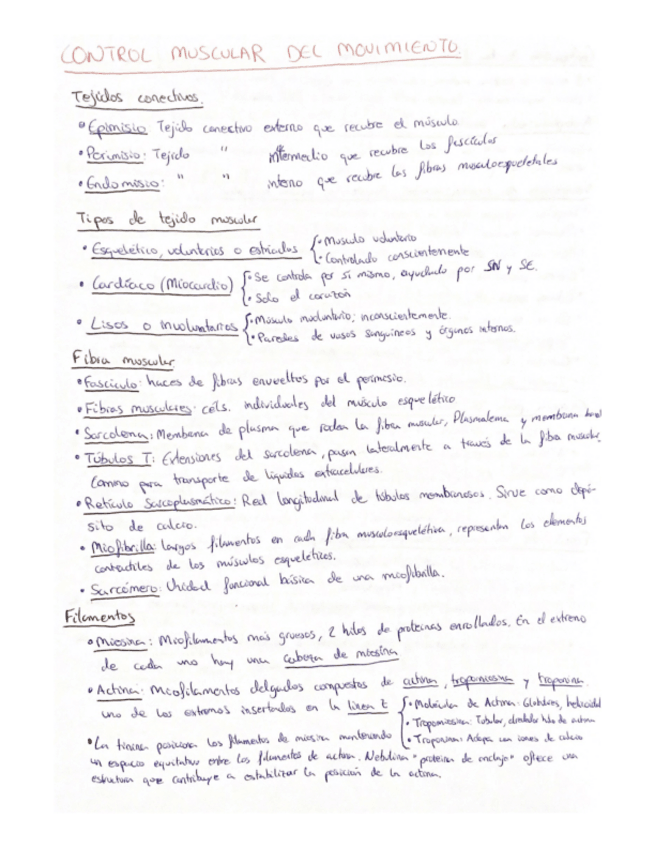 CONTROL MUSCULAR DEL MOVIMIENTO.
Tejidos conectivos.
• Epimisio Tejido conectivo externo que recubre el músculo.
• Perimisio: Tejido " intermedio que recubre los fascículos
• Endomisio: " " interno que recubre las fibras musculoesqueletales
Tipos de tejido muscular
• Esquelético, voluntarios o estriados { • Musculo voluntario
• Controlado conscientemente
• Cardíaco (Miocardio) { • Se controla por sí mismo, ayudado por SN y SE.
• Solo el corazón
• Lisos o Involuntarios { • Músculo involuntario; inconscientemente.
• Paredes de vasos sanguíneos y órganos internos.
Fibra muscular
• Fascículo: haces de fibras envueltos por el perimesio.
• Fibras musculares: céls. individuales del músculo esquelético
• Sarcolema: Membrana de plasma que rodea la fibra muscular, Plasmalema y membrana basal
• Túbulos T: Extensiones del sarcolema, pasan lateralmente a través de la fibra muscular.
Camino para transporte de líquidos extracelulares.
• Retículo Sarcoplasmático: Red longitudinal de túbulos membranosos. Sirve como depó-
sito de calcio.
• Miofibrilla: largos filamentos en cada fibra musculoesquelética, representan los elementos
contractiles de los músculos esqueléticos.
• Sarcómero: Unidad funcional básica de una miofibrilla.
Filamentos
• Miosina: Miofilamentos más gruesos, 2 hilos de proteínas enrollados. En el extremo
de cada uno hay una cabeza de miosina
• Actina: Miofilamentos delgados compuestos de actina, tropomiosina y troponina.
uno de los extremos insertados en la línea Z { • Molécula de Actina: Globulares, helicoidal
• Tropomiosina: Tubular, alrededor hilo de actina
• Troponina: Adapa con iones de calcio
• La titina posiciona los filamentos de miosina manteniendo
un espacio equitativo entre los filamentos de actina. Nebulina "proteína de anclaje" ofrece una
estructura que contribuye a estabilizar la posición de la actina.